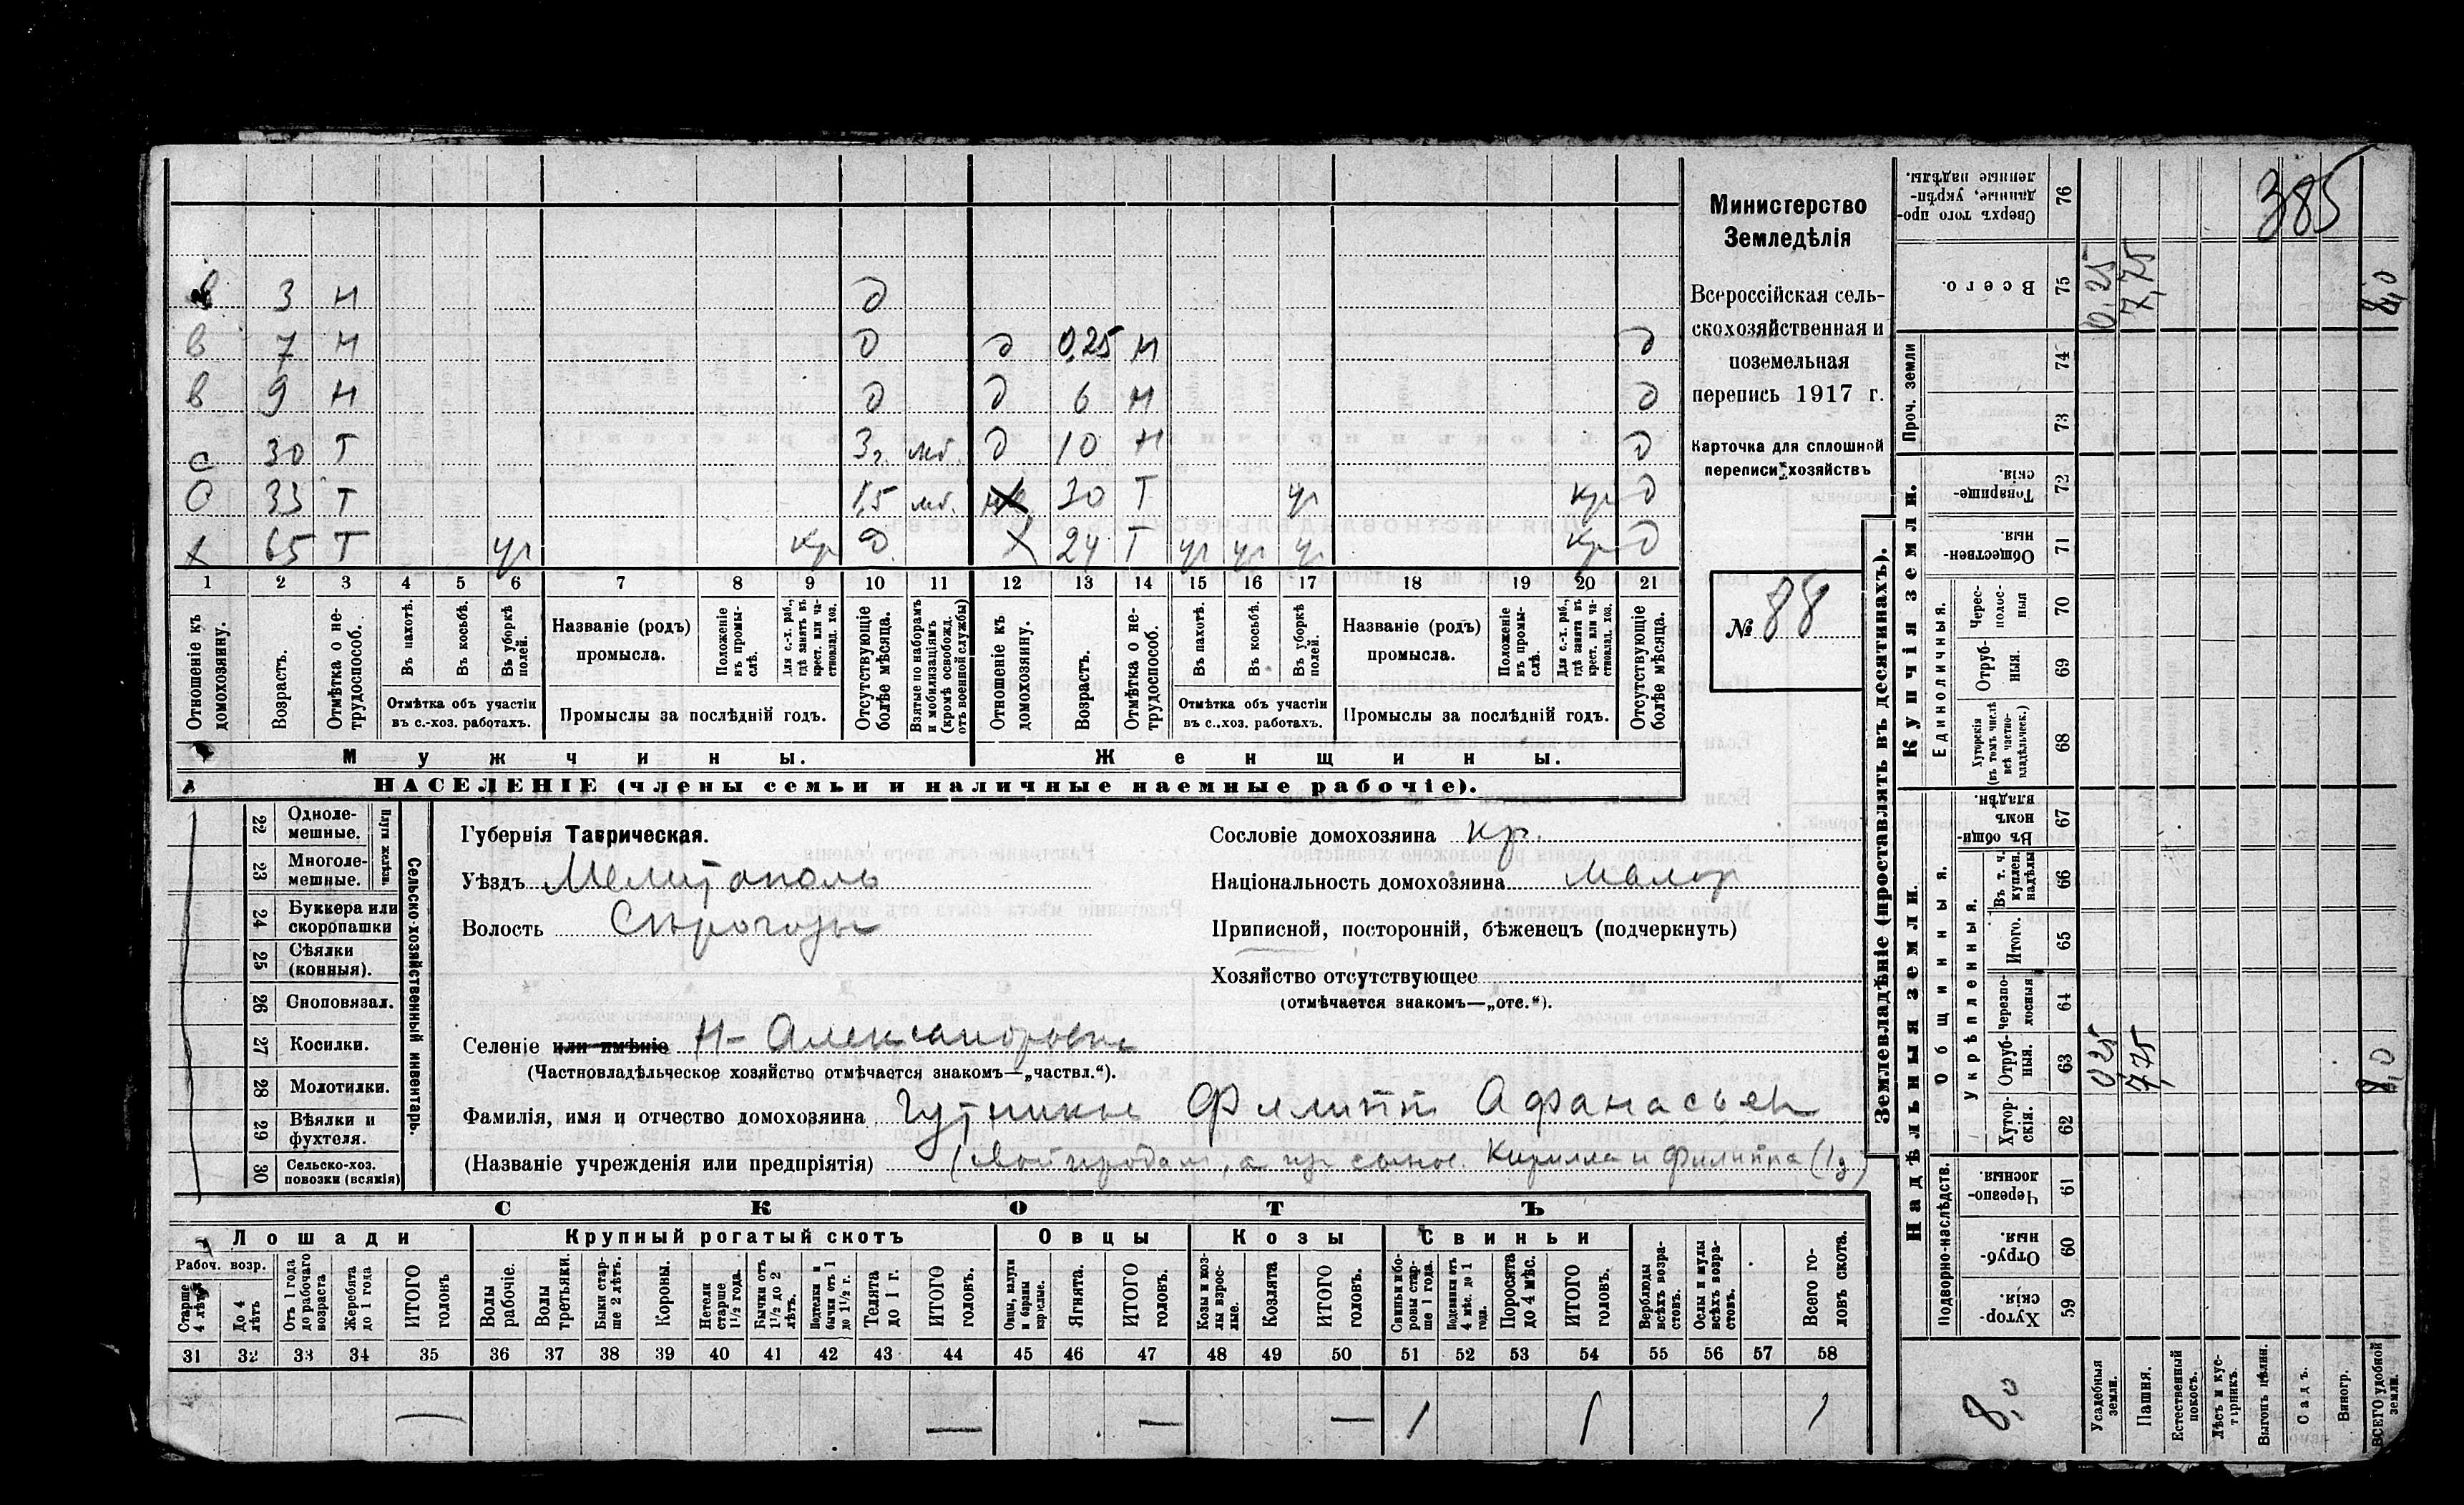 385
Министерство
Земледѣлія
Всероссійская сель-
скохозяйственная и
поземельная
перепись 1917 г.
Карточка для сплошной
переписи хозяйствъ
№ 88
в 3 н д
в 7 н д д 0,25 н д
в 9 н д д 6 н д
с 30 Т 3 г. мб. д 10 н д
с 33 Т 1,5 мб. 30 Т уг кр д
х 65 Т уг кр д х 24 Т уг уг уг кр д
1 2 3 4 5 6 7 8 9 10 11 12 13 14 15 16 17 18 19 20 21
Отношеніе къ домохозяину.
Возрастъ.
Отмѣтка о не-трудоспособ.
Въ пахотѣ.
Въ косьбѣ.
Въ уборкѣ полей.
Отмѣтка объ участіи
въ с.-хоз. работахъ.
Названіе (родъ)
промысла.
Положеніе въ промы-слѣ.
Для с.-х. раб., гдѣ занятъ въ крест. или ча-стновлад. хоз.
Промыслы за послѣдній годъ.
Отсутствующіе болѣе мѣсяца.
Взятые по наборамъ и мобилизаціямъ (кромѣ освобожд. отъ военной службы)
Отношеніе къ домохозяину.
Возрастъ.
Отмѣтка о не-трудоспособ.
Въ пахотѣ.
Въ косьбѣ.
Въ уборкѣ полей.
Отмѣтка объ участіи
въ с..хоз. работахъ.
Названіе (родъ)
промысла.
Положеніе въ промы-слѣ.
Для с.-х. раб., гдѣ занята въ крест. или ча-стновлад. хоз.
Промыслы за послѣдній годъ.
Отсутствующіе болѣе мѣсяца.
Мужчины. Женщины.
НАСЕЛЕНІЕ (члены семьи и наличные наемные рабочіе).
Сельско-хозяйственный инвентарь.
Плуги желѣзн.
22 Одноле-мешные.
23 Многоле-мешные.
24 Буккера или скоропашки
25 Сѣялки (конныя).
26 Сноповязал.
27 Косилки.
28 Молотилки.
29 Вѣялки и фухтеля.
30 Сельско-хоз. повозки (всякія)
Губернія Таврическая.
Уѣздъ Мелитополь
Волость Сѣрогозы
Сословіе домохозяина кр.
Національность домохозяина Малор
Приписной, посторонній, бѣженецъ (подчеркнуть)
Хозяйство отсутствующее
(отмѣчается знакомъ—„отс.“).
Селеніе или имѣніе Н-Александровка
(Частновладѣльческое хозяйство отмѣчается знакомъ—„частвл.“).
Фамилія, имя и отчество домохозяина Гутникъ Филипп Афанасьев
(Названіе учрежденія или предпріятія) а сынов. Кирилла и Филиппа
СКОТЪ
Лошади Крупный рогатый скотъ Овцы Козы Свиньи
Рабоч. возр.
Старше 4 лѣтъ
До 4 лѣтъ
Отъ 1 года до рабочаго возраста
Жеребята до 1 года
ИТОГО головъ
Волы рабочіе.
Волы третьяки.
Быки стар-ше 2 лѣтъ.
Коровы.
Нетели старше 1½ года.
Бычки отъ 1½ до 2 лѣтъ.
Подтелки и бычки отъ 1 до 1½ г.
Телята до 1 г.
ИТОГО головъ.
Овцы, валухи и бараны взрослые.
Ягнята.
ИТОГО головъ.
Козы и коз-лы взрос-лые.
Козлята
ИТОГО головъ.
Свиньи и бо-ровы стар-ше 1 года.
Подсвинки отъ 4 мѣс. до 1 года.
Поросята до 4 мѣс.
ИТОГО головъ.
Верблюды всѣхъ возра-стовъ.
Ослы и мулы всѣхъ возра-стовъ.
Всего го-ловъ скота.
31 32 33 34 35 36 37 38 39 40 41 42 43 44 45 46 47 48 49 50 51 52 53 54 55 56 57 58
— — — — 1 1 1
Землевладѣніе (проставлять въ десятинахъ).
Купчія земли.
Надѣльныя земли.
Проч. земли
Единоличныя.
Общинныя.
Укрѣпленныя.
Подворно-наслѣдств.
76 Сверхъ того про-данные, укрѣп-ленные надѣлы.
75 Всего. 0,25 7,75 8,0
74
73
72 Товарище-скія.
71 Обществен-ныя.
70 Черес-полос-ныя
69 Отруб-ныя.
68 Хуторскія (въ томъ числѣ всѣ частно-владѣльческ.)
67 Въ общи-номъ владѣн.
66 Въ т. ч. куплен. надѣлы
65 Итого.
64 Черезпо-лосныя
63 Отруб-ныя. 0,25 7,75 8,0
62 Хутор-скія.
61 Черезпо-лосныя.
60 Отруб-ныя.
59 Хутор-скія.
8,0
Усадебныя земли.
Пашня.
Естественный покосъ.
Лѣсъ и кус-тарникъ.
Выгонъ цѣлин.
Садъ.
Виногр.
ВСЕГО удобной земли.